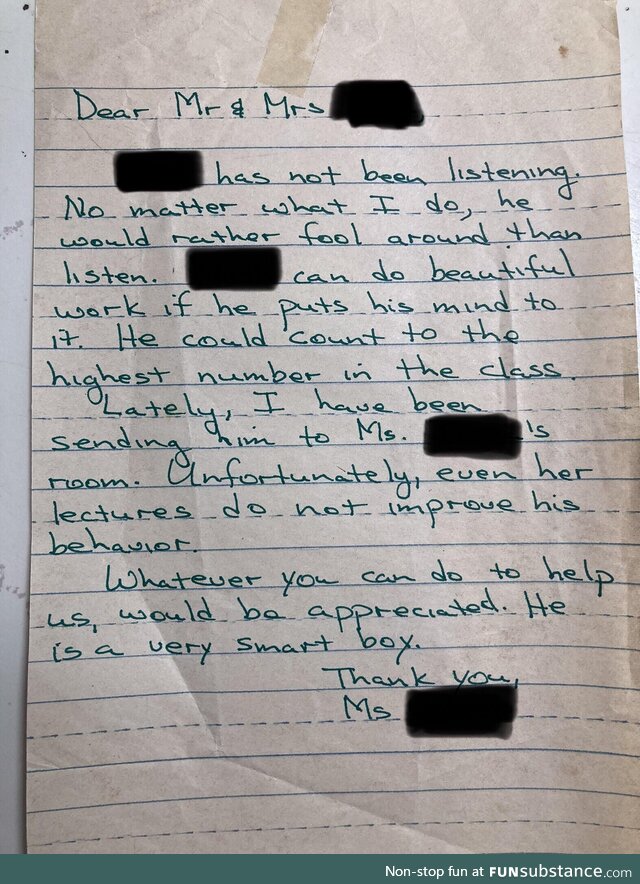 Dear Mr & Mrs
has not been listening.
No matter what I do, he
would rather fool around than
listen. can do beautiful
work if he puts his mind to
it. He could count to the
highest number in the class.
Lately, I have been
sending him to Ms. 's
room. Unfortunately, even her
lectures do not improve his
behavior.
Whatever you can do to help
us, would be appreciated. He
is a very smart boy.
Thank you,
Ms
Non-stop fun at FUNsubstance.com